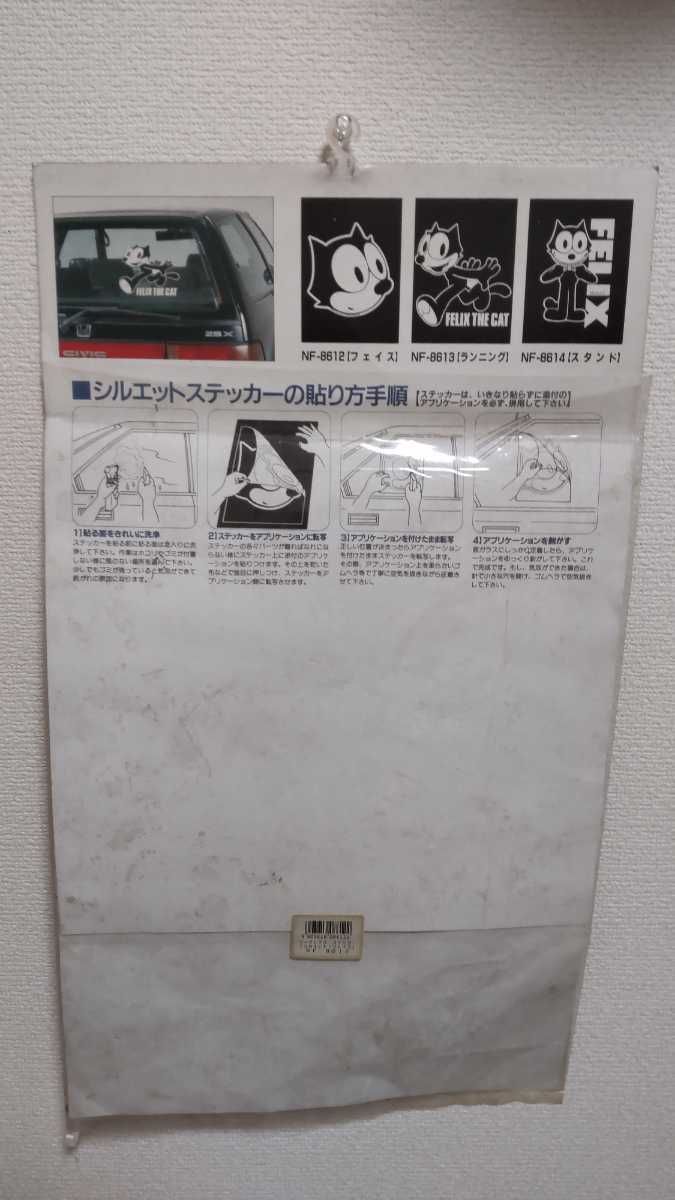 FELIX THE CAT
25X
CIVIC
FELIX THE CAT
FELIX
NF-8612【フェイス】 NF-8613【ランニング】 NF-8614【スタンド】
■シルエットステッカーの貼り方手順
【ステッカーは、いきなり貼らずに添付の
アプリケーションを必ず、併用して下さい】
1】貼る面をきれいに洗浄
ステッカーを貼る前に貼る面は念入りに洗
浄して下さい。作業はホコリやゴミが付着
しない様に風のない場所を選んで下さい。
少しでもゴミが残っていると気泡ができて
剥がれの原因になります。
2】ステッカーをアプリケーションに転写
ステッカーの各々パーツが離ればなれにな
らない様にステッカー上に添付のアプリケ
ーションを貼りつけます。その上を乾いた
布などで強目に押しつけ、ステッカーをア
プリケーション側に転写させます。
3】アプリケーションを付けたまま転写
正しい位置が決まったらアプリケーション
を付けたままステッカーを転写します。
その際、アプリケーション上を柔らかいゴ
ムヘラ等で丁寧に空気を抜きながら圧着さ
せて下さい。
4】アプリケーションを剥がす
窓ガラスにしっかり定着したら、アプリケ
ーションをゆっくり剥がして下さい。これ
で完成です。もし、気泡ができた場合は、
針で小さな穴を開け、ゴムヘラで空気抜き
して下さい。